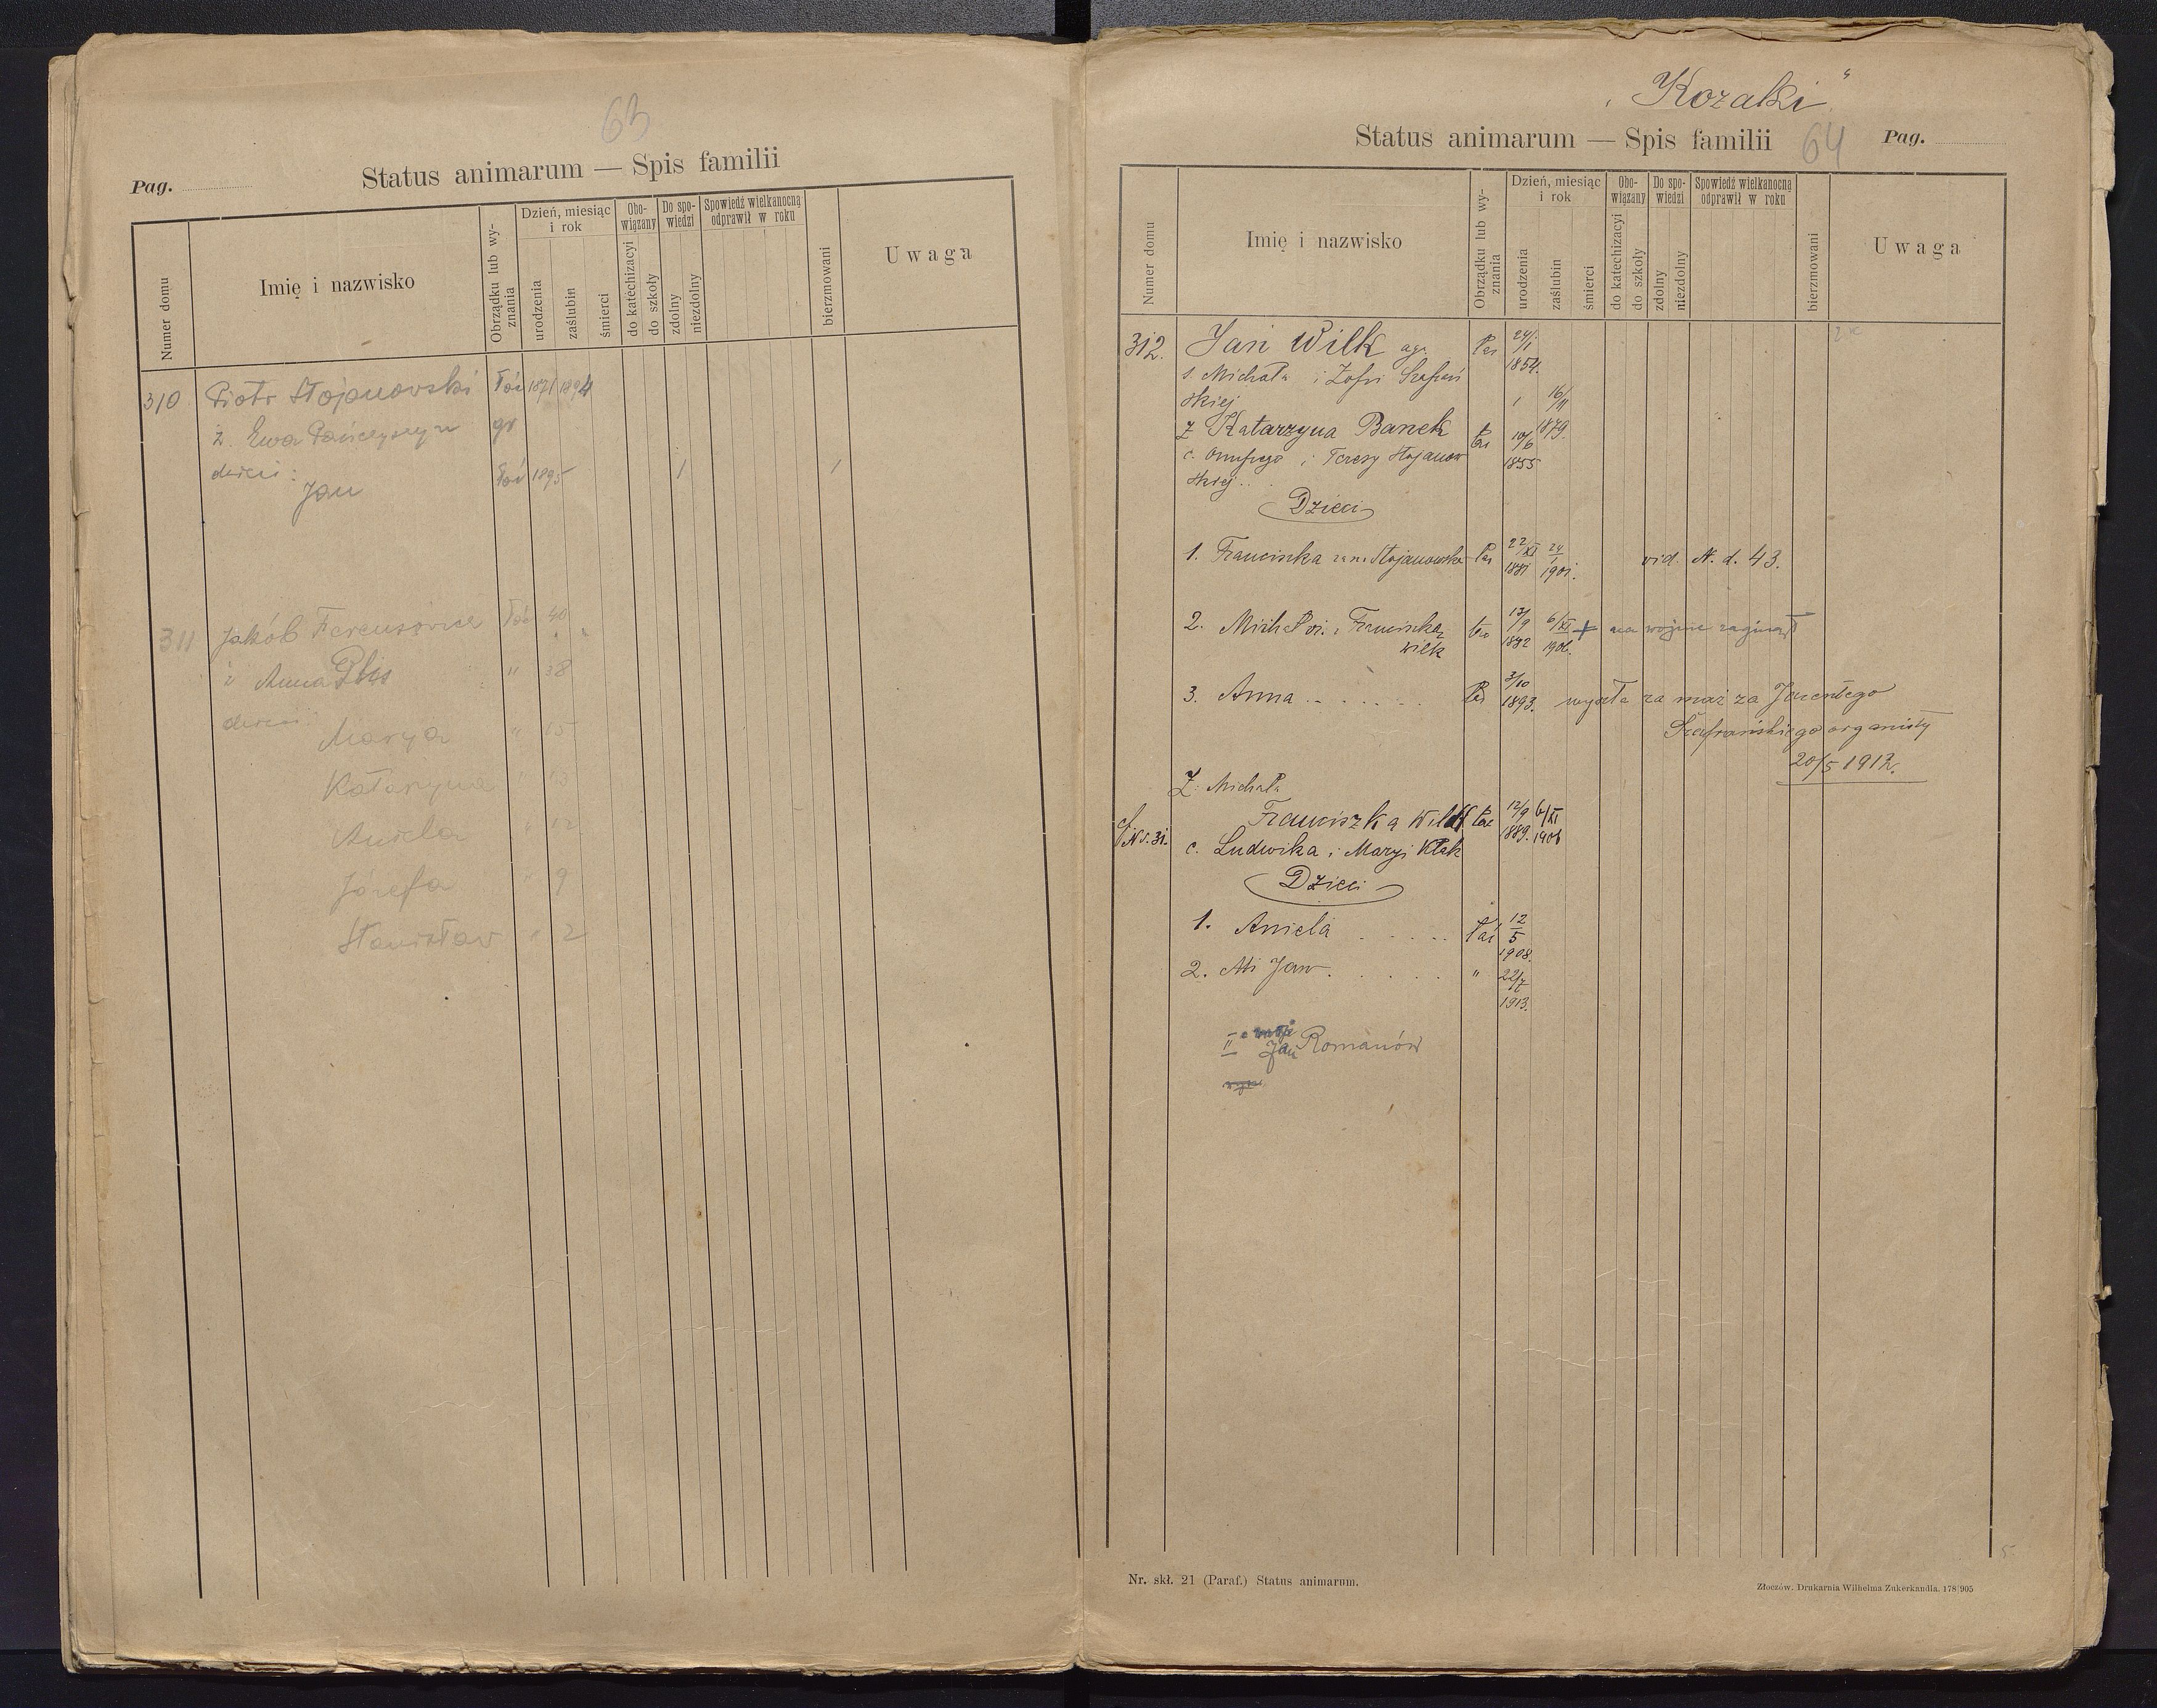 63
Pag.
Status animarum — Spis familii
Numer domu
Imię i nazwisko
Obrządku lub wyznania
Dzień, miesiąc i rok
urodzenia
zaślubin
śmierci
Obowiązany
do katechizacyi
do szkoły
Do spowiedzi
zdolny
niezdolny
Spowiedź wielkanocną odprawił w roku
bierzmowani
Uwaga
310 Piotr Stojanowski łać 1871 1894
ż. Ewa gr
dzieci:
Jan łać 1895 1 1
311 Jakób łać 40
ż Anna " 38
dzieci
Marya " 15
Katarzyna " 13
Aniela " 12
Józefa " 9
Stanisław " 2
„Kozaki"
Status animarum — Spis familii 64 Pag.
Numer domu
Imię i nazwisko
Obrządku lub wyznania
Dzień, miesiąc i rok
urodzenia
zaślubin
śmierci
Obowiązany
do katechizacyi
do szkoły
Do spowiedzi
zdolny
niezdolny
Spowiedź wielkanocną odprawił w roku
bierzmowani
Uwaga
312. Jan Wilk agr. łać 24/1 1854.
s. Michała i Zofii Szafrań
skiej 16/11 1879.
Ż Katarzyna Banek łać 10/6 1855
c. Onufrego i Teresy Stojanow
skiej..
Dzieci
1. Francinka zam. Stojanowska łać 22/XI 1881 24/1 1901. vid. N. d. 43.
2. Michał Francinka łać 13/9 1882 6/XI 1906. + na wojnie zaginął
Wilk
3. Anna . . . . . . łać 3/10 1893. wyszła za mąż za Jacentego
Szafrańskiego organistę
20/5 1912.
Ż. Michała
Franciszka Wilk łać 12/9 1889. 6/XI 1906
N. 31. c. Ludwika i Maryi Kłak
Dzieci
1. Aniela . . . . . łać 12/5 1908.
2. Jan. . . . . . " 22/7 1913.
II Jan Romanów
Nr. skł. 21 (Paraf.) Status animarum.
Złoczów. Drukarnia Wilhelma Zukerkandla. 178|905